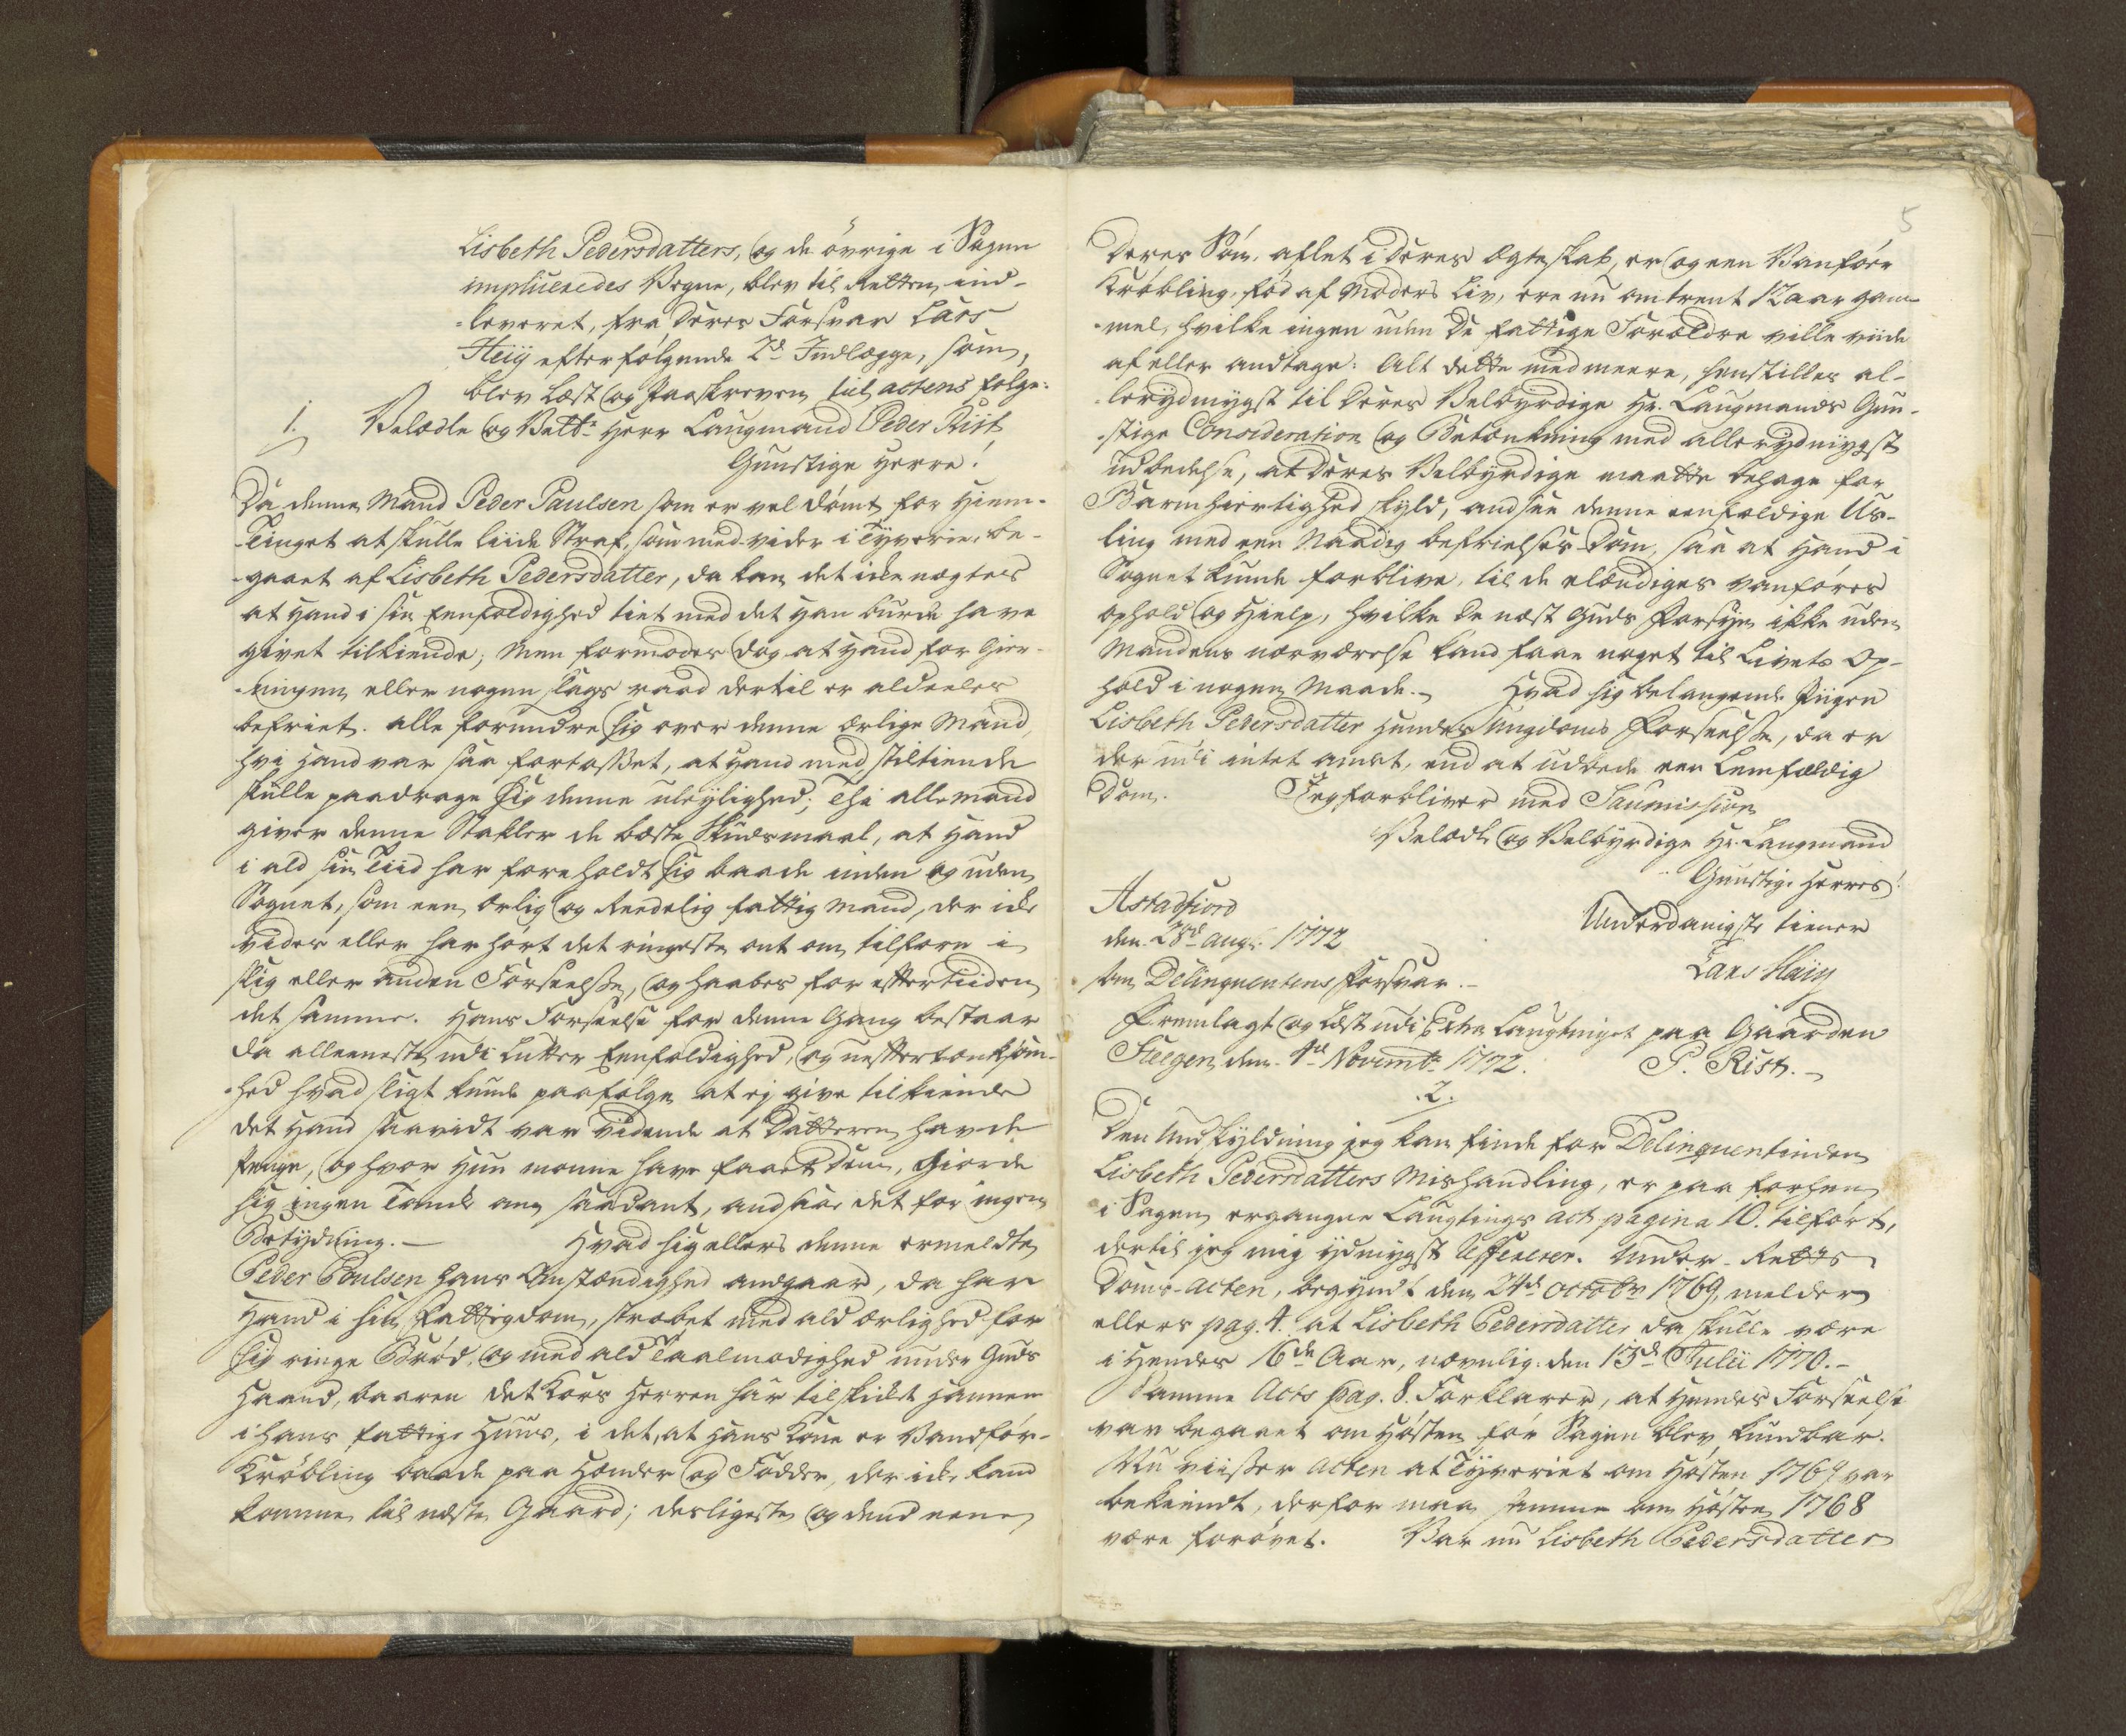 Lisbeth Pedersdatters, og de övrige i Sagen
impliceredes Vegne, blev til Retten ind-
-leveret, fra deres Forsvar Lars
Heiy efterfölgende 2de Indlægge, som,
blev Læst og Paaskreven til actens følge:
1. Velædle og Velb: Herr Laugmand Peder Rist
Gunstige Herre!
Da denne Mand Peder Paulsen som er vel dömt for Hiem-
-Tinget at skulle liide Straf, som med-vider i Tyverie, be-
-gaaet af Lisbeth Pedersdatter, da kan det icke nægtes
at Hand i sin Eenfoldighed tiet med det Han burde have
givet tilkiende; Men formodes dog at Hand for Gier-
-ningen eller nogen slags raad dertil er aldeeles
befriet. Alle forundre sig over denne ærlige Mand,
hvi Hand var saa fortabbet, at Hand med stiltiende
skulle paadrage sig denne uleylighed; Thi alle mand
giver denne Stakler de bæste Skudsmaal, at Hand
i ald sin Tiid har foreholdt sig baade inden og uden
Sognet, som een ærlig og Reedelig fattig Mand, der icke
vides eller har hört det ringeste ont om tilforn i
slig eller anden Forseelse, og haabes for eftertiiden
det samme. Hans Forseelse for denne Gang bestaar
da alleeneste udi Lutter Eenfoldighed, og uefftertænksom-
-hed hvad sligt kunde paafölge at ej give tilkiende
det Hand saavidt var vidende at Datteren havde
Penge, og hvor Hun monne have faaet dem, Giorde
sig ingen Tanke om saadant, andsaae det for ingen
Betydning. — Hvad sig ellers denne ermeldte
Peder Poulsen hans Omstændighed andgaar, da har
Hand i sin Fattigdom, stræbet med ald ærlighed for
sig ringe Bröd, og med ald Taalmodighed under Guds
Haand, baaren det Kors Herren har tilskicket Hannem
i hans fattige Huus, i det, at hans Kone er Vandför-
Kröbling baade paa Hænder og Födder, der icke kand
komme til næste Gaard; desligeste og dend eene
5
Deres Sön, aflet i deres Ægteskab, er og een Vanför
Kröbling, föd af Moders Liv, ere nu omtrent 12 aar gam-
-mel, hvilke ingen uden de fattige Forældre ville viide
af eller andtage: Alt dette med meere, henstilles al-
-lerydmygst til Deres Velbyrdige Hr. Laugmands Gun-
-stige Consideration og Betænkning med allerydmygst
udbedelse, at Deres Velbyrdige maatte behage for
Barmhiertighed skyld, andsee denne eenfoldige Us-
ling med een Naadig befrielses-Dom, saa at Hand i
Sognet kunde forblive, til de elændiges vanföres
ophold og Hielp, hvilke de næst Guds Forsyn ikke uden
Mandens nærværelse kand faae noget til Livets Op-
hold i nogen Maade. Hvad sig belangende Piigen
Lisbeth Pedersdatter Hendes Ungdoms Forseelse, da er
der udi intet andet, end at udbede een Lemfældig
Dom. Jeg forbliver med Saumission
Velædle og Velbyrdige Hr. Laugmand
Gunstige Herres!
Astadfiord
den 28de Augs: 1772
Underdanigste tiener
Lars Haiy
som Delinquentens Forsvar.-
Fremlagt og Læst udi Extra Laugtinget paa Gaarden
Steegen, den 4de Novembr 1772. P. Rist.
.2.
Den Undskyldning jeg kan finde for Delinquentinden
Lisbeth Pedersdatters Mishandling, er paa forhen
i Sagen ergangne Laugtings act pagina 10. tilfört,
dertil jeg mig ydmygst Refererer. Under-Retts
Doms-acten, begyndt den 24de octobr 1769, melder
ellers pag. 4. at Lisbeth Pedersdatter da skulle være
i Hendes 16de Aar, nævnlig den 13de Julii 1770.-
Samme Acts pag. 8. Forklarer, at Hendes Forseelse
var begaaet om Hösten, för Sagen blev kundbar.
Nu viiser acten at Tyveriet om Hösten 1769 var
bekiendt, derfor maa samme om Hösten 1768
være forövet. Var nu Lisbeth Pedersdatter